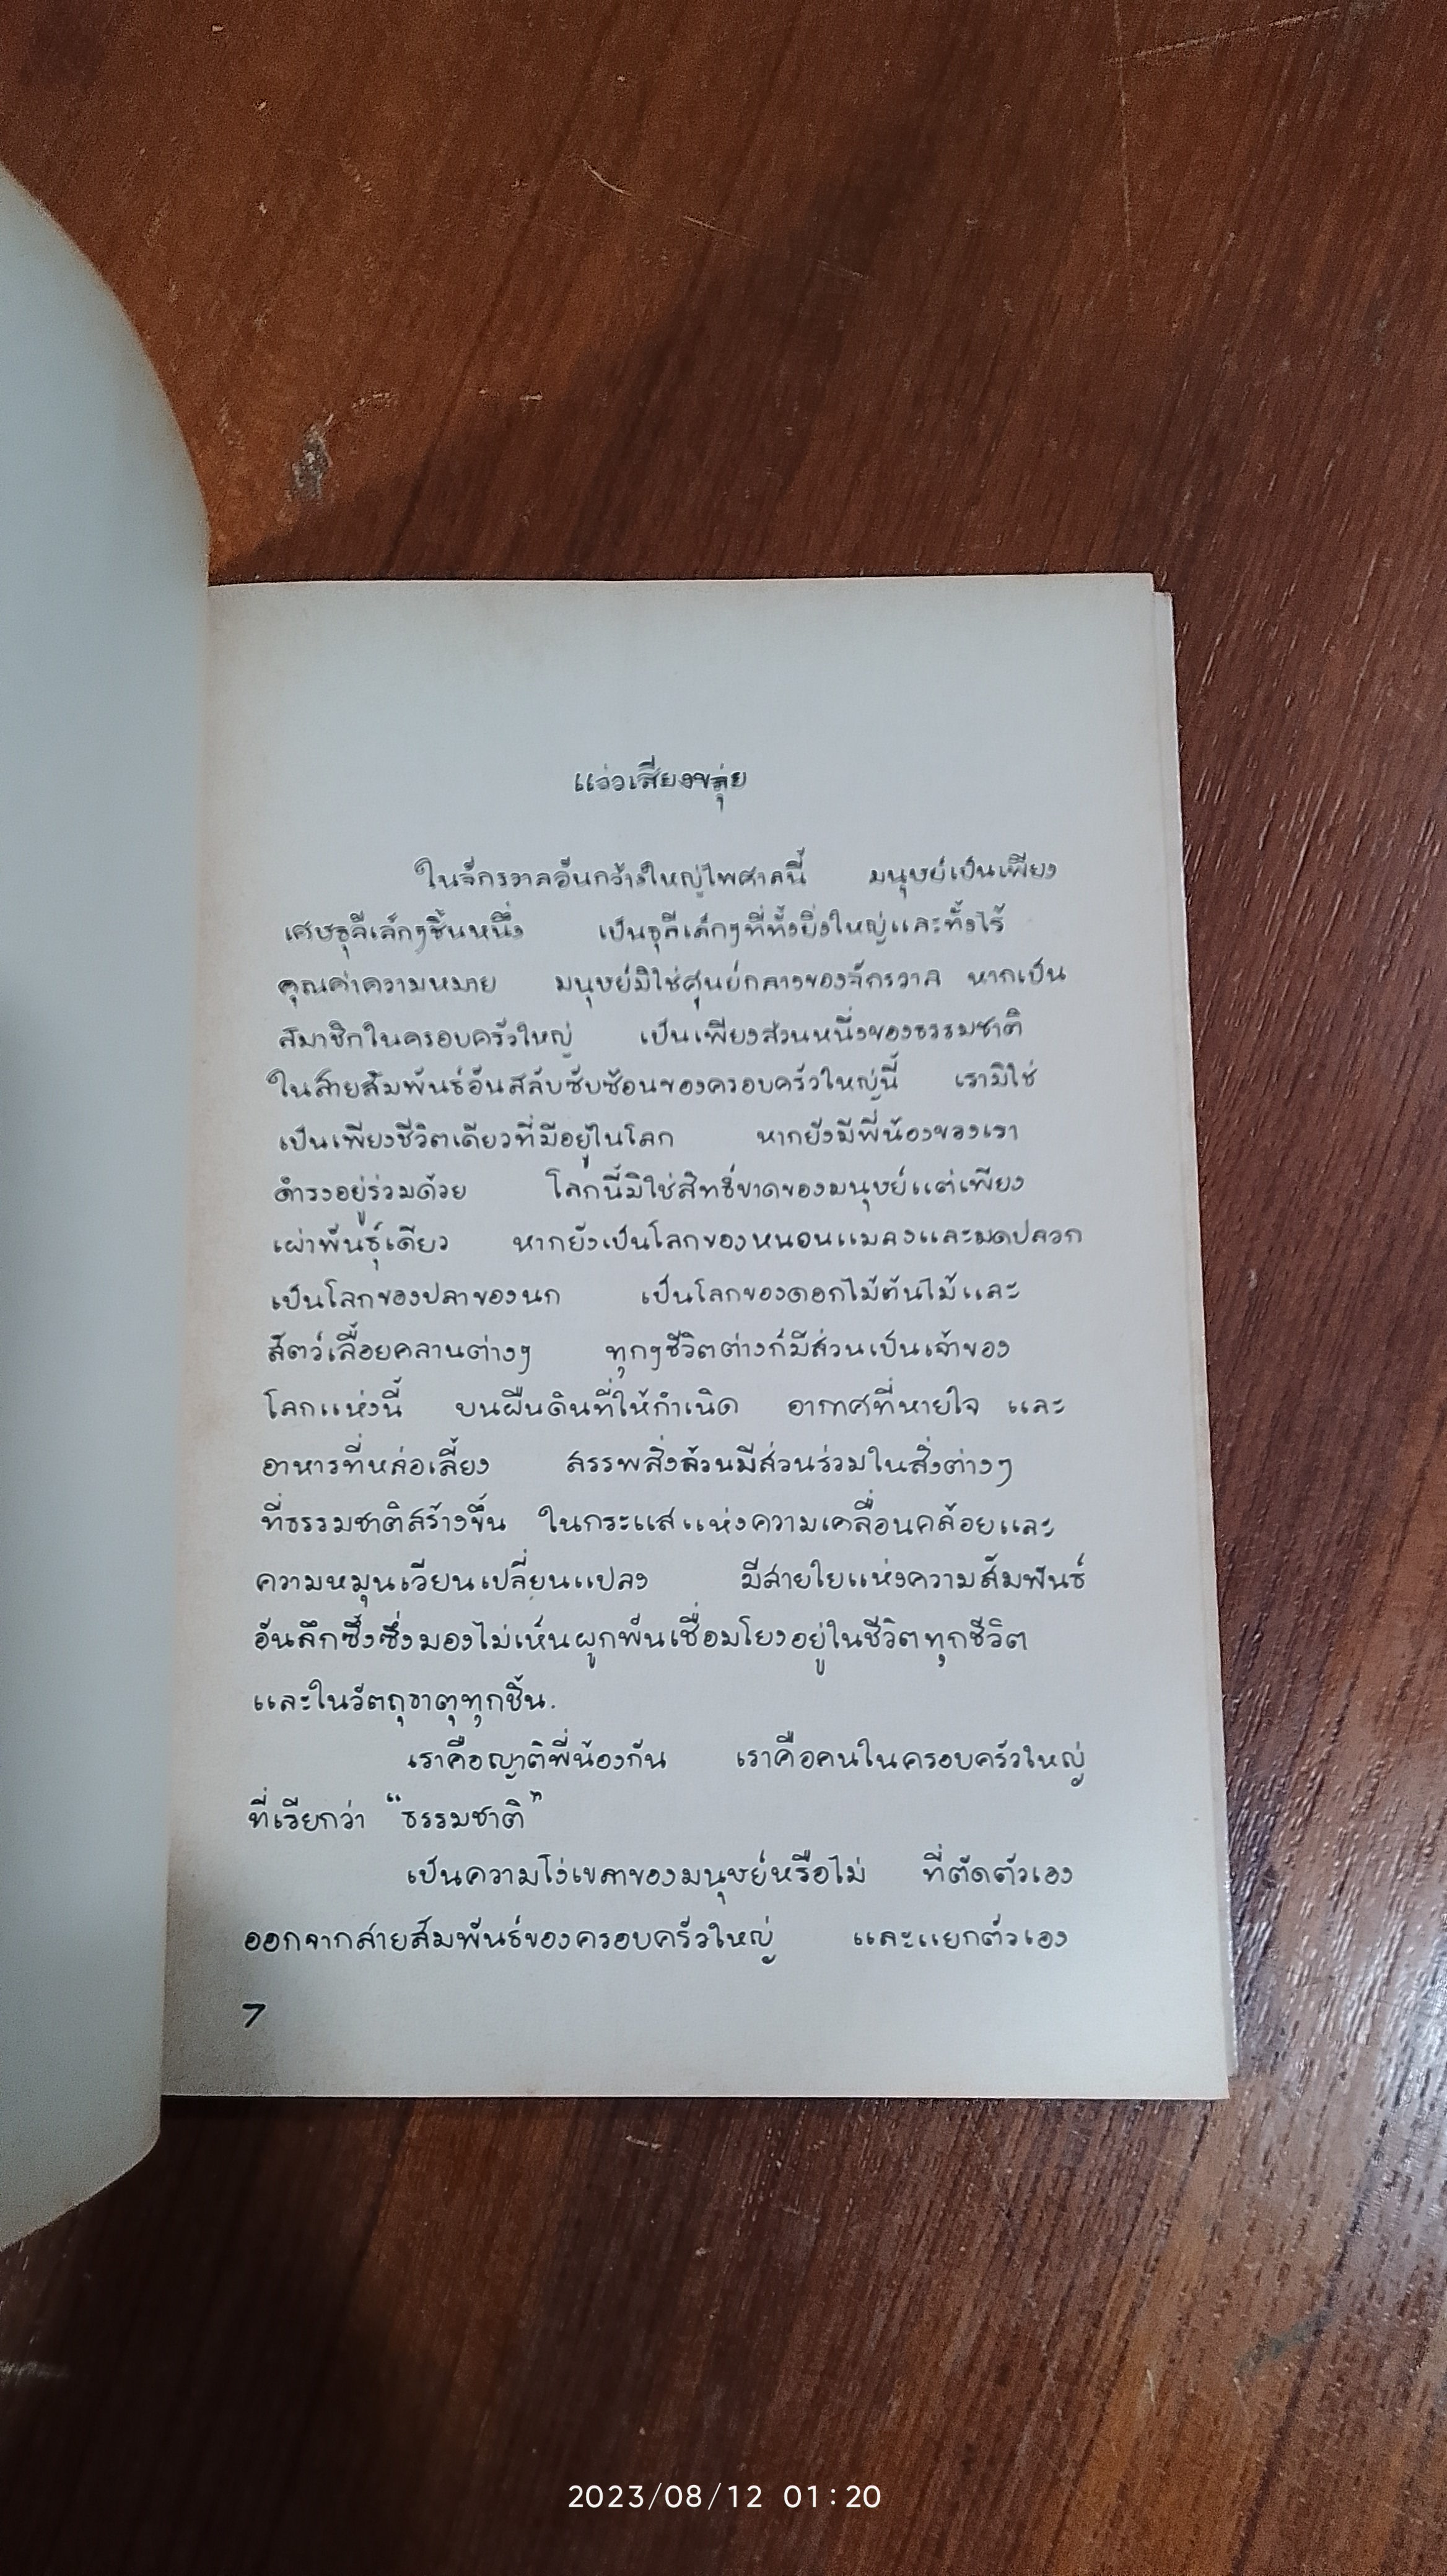 แว่วเสียงขลุ่ย
ในจักรวาลอันกว้างใหญ่ไพศาลนี้ มนุษย์เป็นเพียง
เศษธุลีเล็กๆชิ้นหนึ่ง เป็นธุลีเล็กๆที่ทั้งยิ่งใหญ่และทั้งไร้
คุณค่าความหมาย มนุษย์มิใช่ศูนย์กลางของจักรวาล หากเป็น
สมาชิกในครอบครัวใหญ่ เป็นเพียงส่วนหนึ่งของธรรมชาติ
ในสายสัมพันธ์อันสลับซับซ้อนของครอบครัวใหญ่นี้ เรามิใช่
เป็นเพียงชีวิตเดียวที่มีอยู่ในโลก หากยังมีพี่น้องของเรา
ดำรงอยู่ร่วมด้วย โลกนี้มิใช่สิทธิ์ขาดของมนุษย์แต่เพียง
เผ่าพันธุ์เดียว หากยังเป็นโลกของหนอนแมลงและมดปลวก
เป็นโลกของปลาของนก เป็นโลกของดอกไม้ต้นไม้และ
สัตว์เลื้อยคลานต่างๆ ทุกๆชีวิตต่างก็มีส่วนเป็นเจ้าของ
โลกแห่งนี้ บนผืนดินที่ให้กำเนิด อากาศที่หายใจ และ
อาหารที่หล่อเลี้ยง สรรพสิ่งล้วนมีส่วนร่วมในสิ่งต่างๆ
ที่ธรรมชาติสร้างขึ้น ในกระแสแห่งความเคลื่อนคล้อยและ
ความหมุนเวียนเปลี่ยนแปลง มีสายใยแห่งความสัมพันธ์
อันลึกซึ้งซึ่งมองไม่เห็นผูกพันเชื่อมโยงอยู่ในชีวิตทุกชีวิต
และในวัตถุธาตุทุกชิ้น.
เราคือญาติพี่น้องกัน เราคือคนในครอบครัวใหญ่
ที่เรียกว่า “ธรรมชาติ”
เป็นความโง่เขลาของมนุษย์หรือไม่ ที่ตัดตัวเอง
ออกจากสายสัมพันธ์ของครอบครัวใหญ่ และแยกตัวเอง
7
2023/08/12 01:20